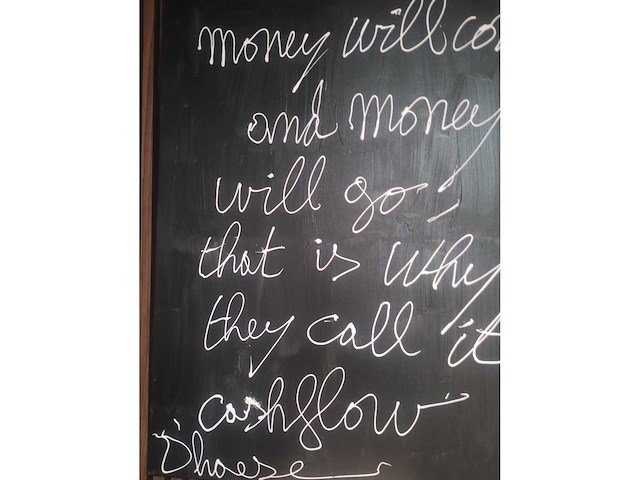 money will co
and money
will go,
that is why
they call it
cashflow